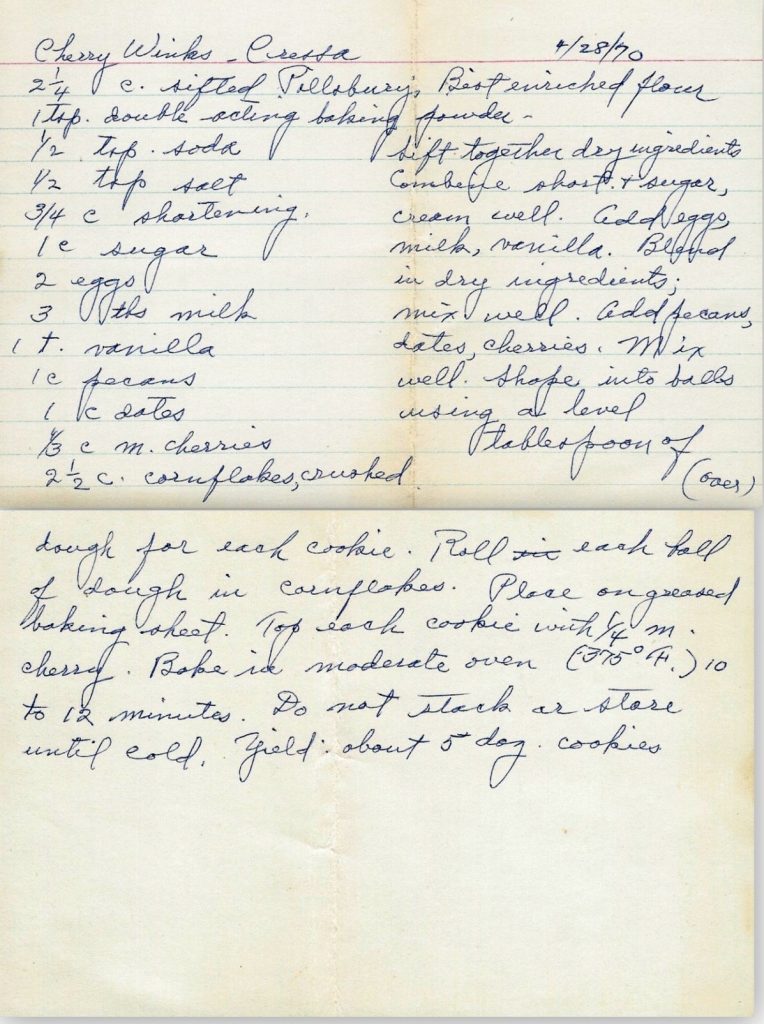 Cherry Winks - Cressa 4/28/70
2 1/4 c. sifted Pillsbury's Best enriched flour
1 tsp. double acting baking powder -
1/2 tsp. soda
1/2 tsp salt
3/4 c shortening.
1 c sugar
2 eggs
3 tbs milk
1 t. vanilla
1 c pecans
1 c dates
1/3 c m. cherries
2 1/2 c. cornflakes, crushed.
Sift together dry ingredients
Combine short. + sugar,
cream well. Add eggs,
milk, vanilla. Blend
in dry ingredients;
mix well. Add pecans,
dates, cherries. Mix
well. Shape into balls
using a level
tablespoon of
(over)
dough for each cookie. Roll each ball
of dough in cornflakes. Place on greased
baking sheet. Top each cookie with 1/4 m.
cherry. Bake in moderate oven (375° F.) 10
to 12 minutes. Do not stack or store
until cold. Yield: about 5 doz. cookies